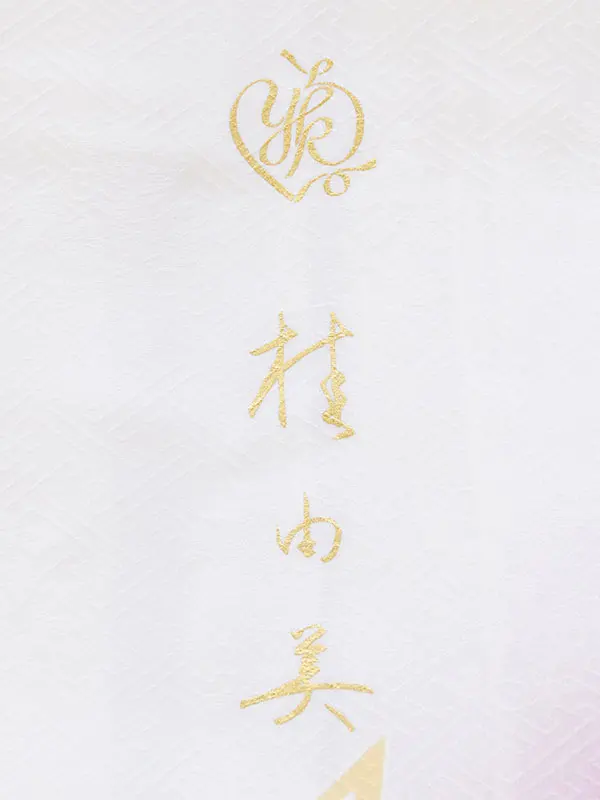 yk
桂由美